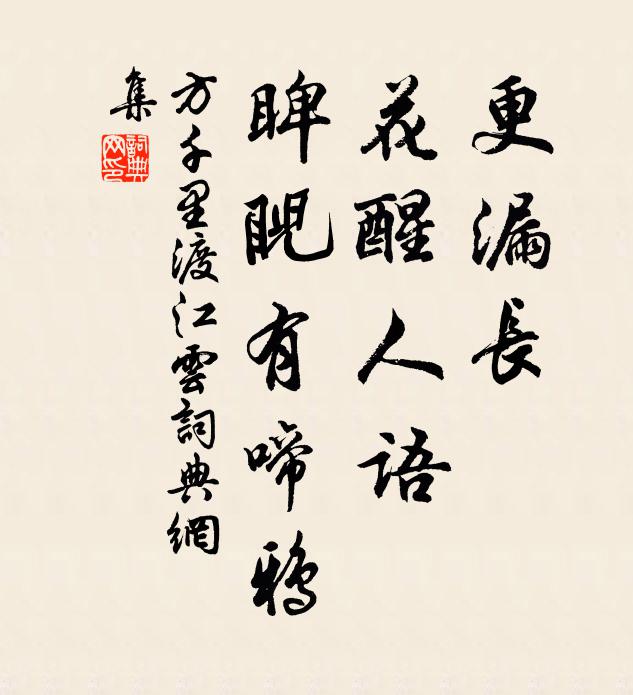 更漏長
花醒人語
睥睨有啼鴉
方千里渡江雲詞典網
集
詞典
網印